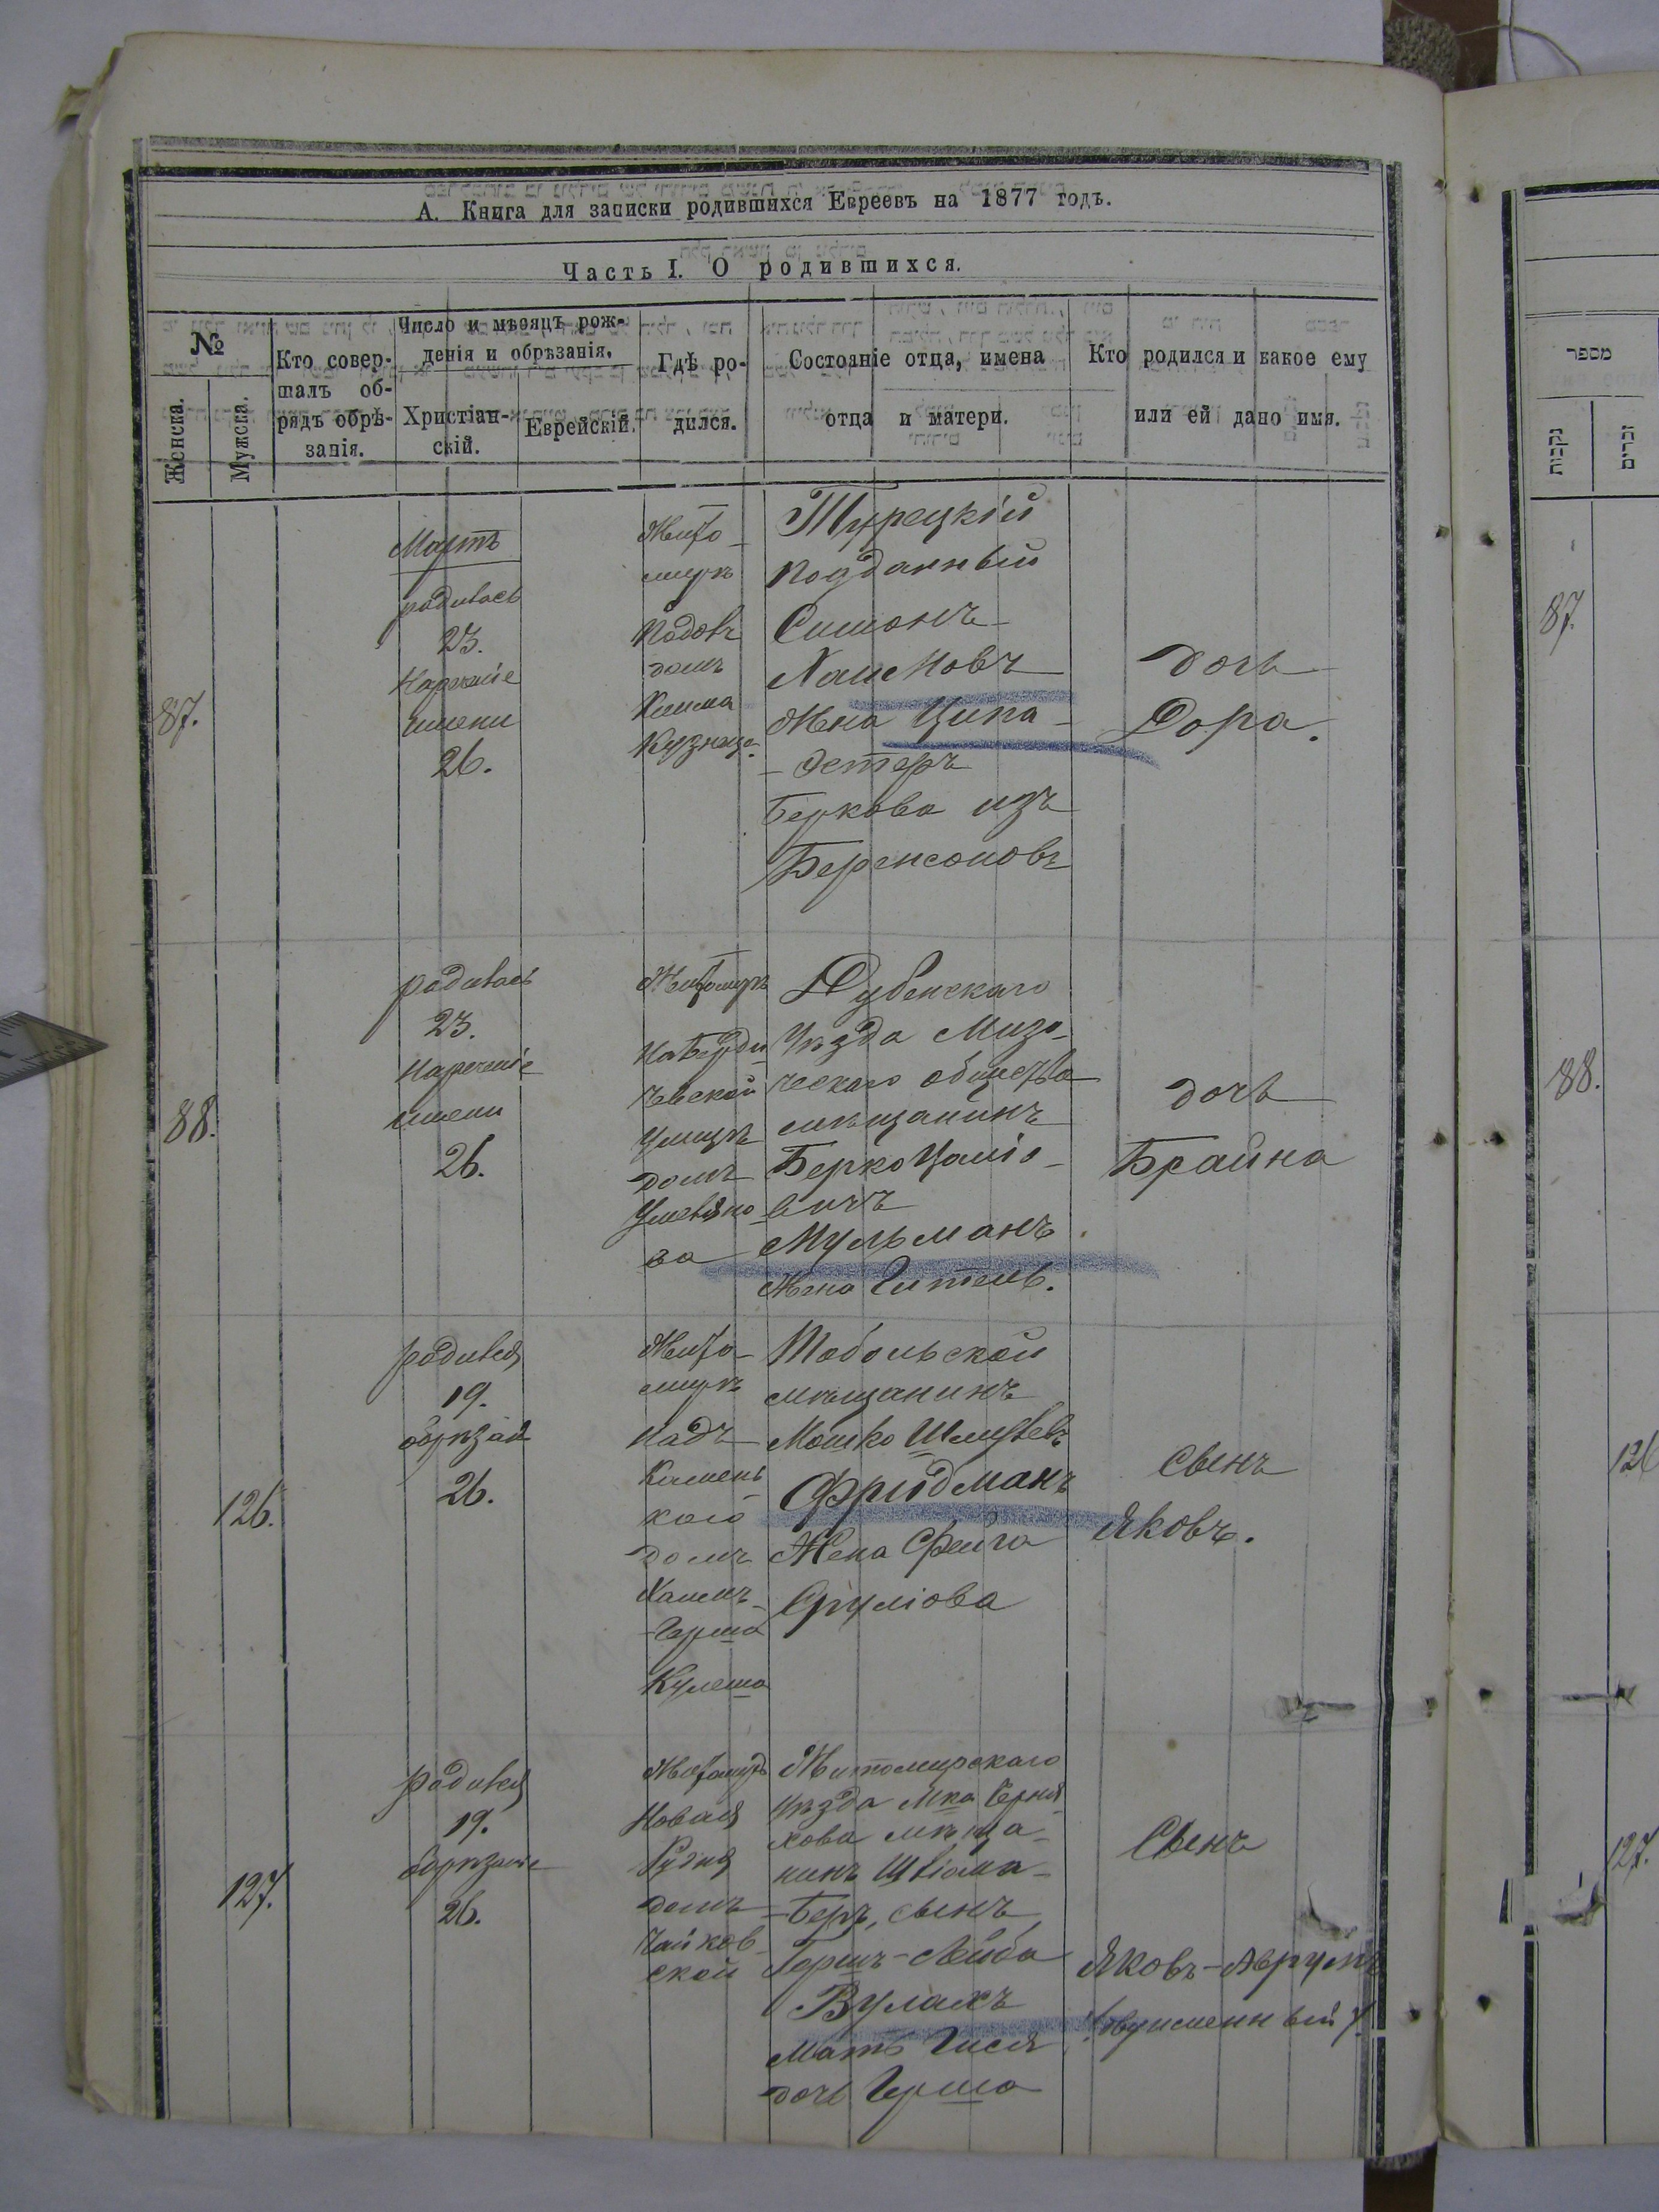 А. Книга для записки родившихся Евреевъ на 1877 годъ.
Часть I. О родившихся.
№
Женска.
Мужска.
Кто совер-
шалъ об-
рядъ обрѣ-
занія.
Число и мѣсяцъ рож-
денія и обрѣзанія.
Христіан-
скій.
Еврейскій.
Гдѣ ро-
дился.
Состояніе отца, имена
отца и матери.
Кто родился и какое ему
или ей дано имя.
87.
Мартъ
родилась
23.
Нареченіе
имени
26.
Жито-
миръ
домъ
Кузнеца
Турецкій
подданный
Симонъ
Хаимовъ
Жена Ципа-
-Эстеръ
Беркова изъ
Беренсоновъ
дочь
Дора.
88.
родилась
23.
Нареченіе
имени
26.
Житомиръ
На Берди-
чевской
улицѣ
домъ
ва
Дубенскаго
Уѣзда Мизо-
ческаго общества
мѣщанинъ
Берко
вичъ
Мульманъ
Жена Гитель.
дочь
Брайна
126.
родился
19.
обрѣзан
26.
Жито-
миръ
Надъ
Камень
кою
домъ
Хаимъ-
-Герша
Кулеша
Тобольской
мѣщанинъ
Мошко Шмулевъ
Фридманъ
Жена Фейга
Сруліова
Сынъ
Яковъ.
127.
родился
19.
Обрѣзаніе
26.
Житомиръ
Новая
Рудня
домъ
Чайков-
ской
Житомирскаго
Уѣзда Мка Черня-
хова мѣща-
нинъ
-Беръ, сынъ
Гершъ-Лейба
Вулахъ
Мать Гися
дочь Герша
Сынъ
Яковъ-Аврумъ
/двуименный/.
מספר
נקבות
זכרים
87.
88.
126
127.